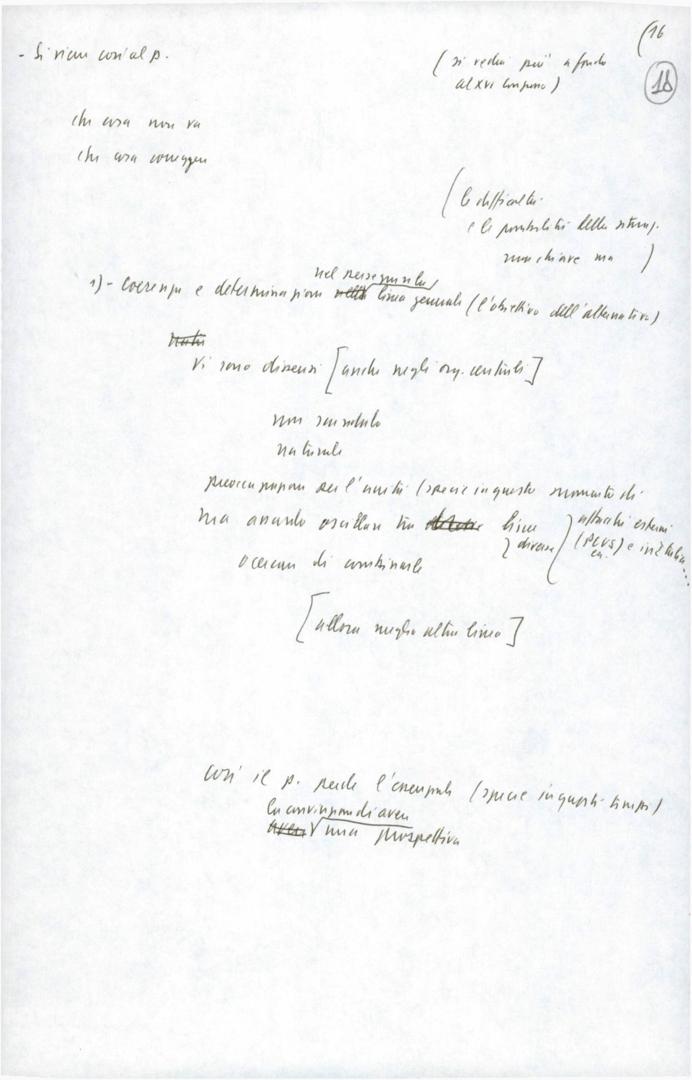 (16
16
- Si viene così al p.
(si vedrà più a fondo
al XVI congresso)
che cosa non va
che cosa correggere
(le difficoltà
e le possibilità della
ma
1) - Coerenza e determinazione nel perseguire la linea generale (l'obiettivo dell'alternativa)
Vi sono dissensi [anche negli org. centrali]
non scandalo
naturale
preoccupazione per l'unità (specie in questo momento di
attacchi esterni
ma quando oscillare tra linee
diverse
o cercare di combinarle
[allora meglio altra linea]
Così il p. perde l'essenziale (specie in questi tempi)
la convinzione di avere
una prospettiva